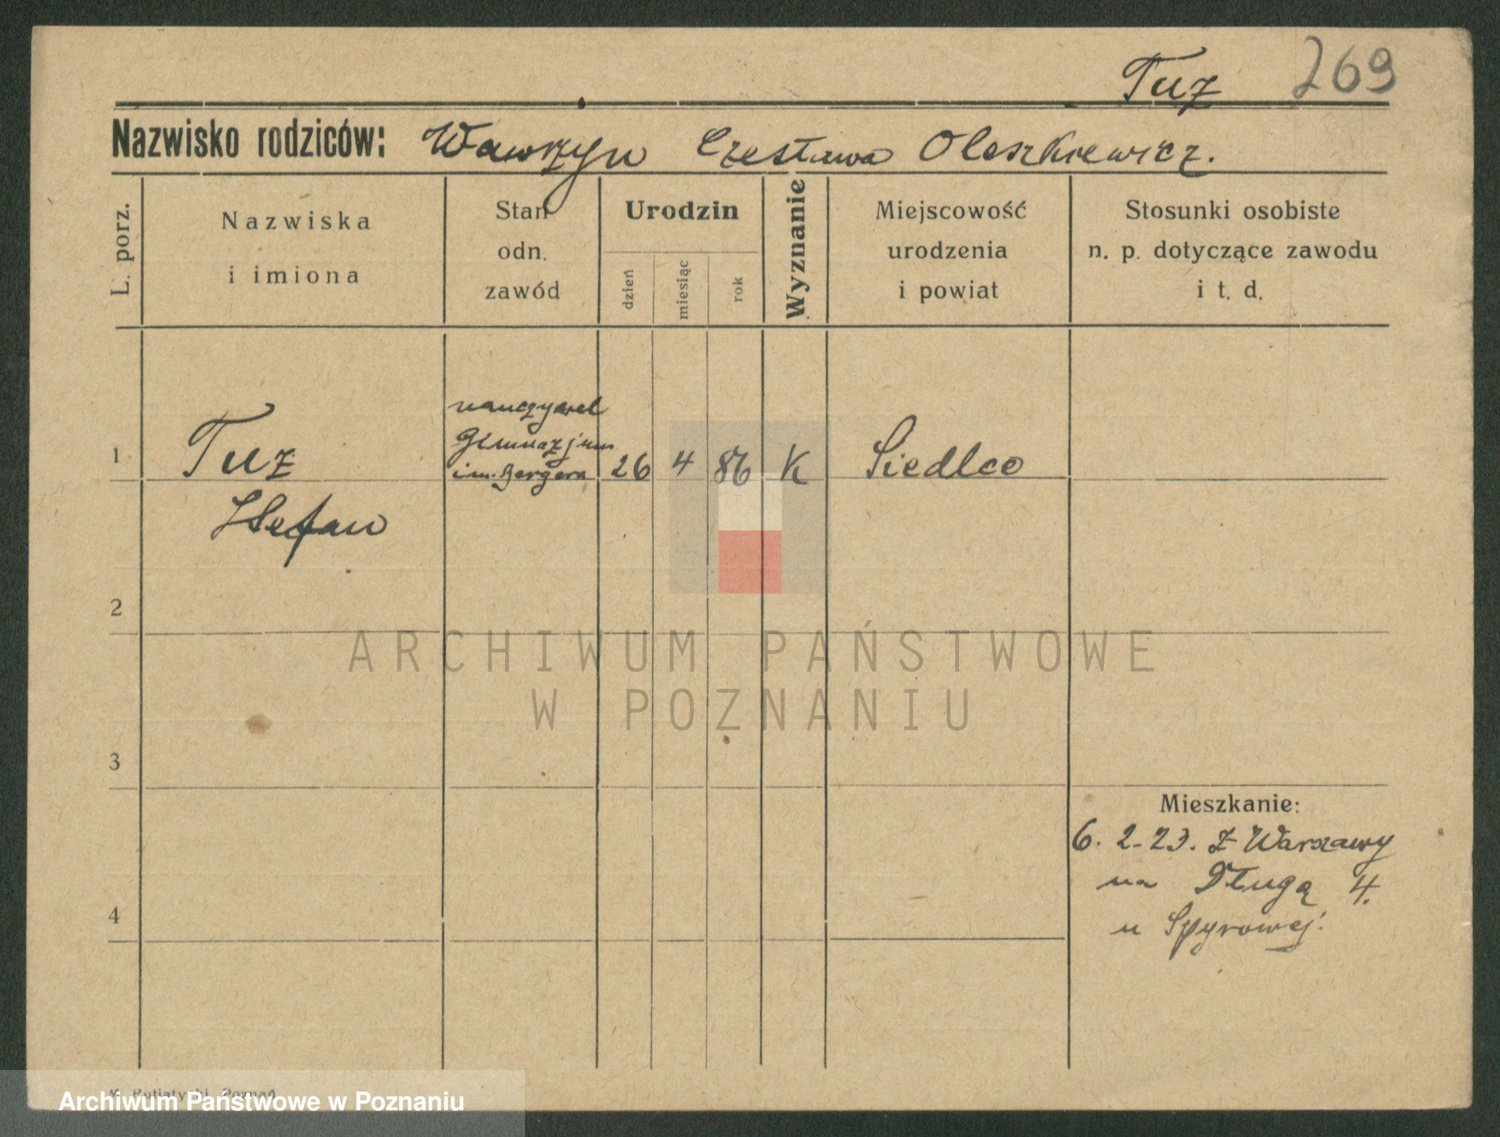 Tuz 269
Nazwisko rodziców: Wawrzyn Czesława Oleszkiewicz.
L. porz.
Nazwiska
i imiona
Stan
odn.
zawód
Urodzin
dzień
miesiąc
rok
Wyznanie
Miejscowość
urodzenia
i powiat
Stosunki osobiste
n. p. dotyczące zawodu
i t. d.
1
Tuz
Stefan
nauczyciel
Gimnazjum
im. Bergera
26 4 86 K Siedlce
2
3
4
Mieszkanie:
6. 2. 23. z Warszawy
na Długą 4.
u Spyrowej.
ARCHIWUM PAŃSTWOWE
W POZNANIU
Poznań
Archiwum Państwowe w Poznaniu